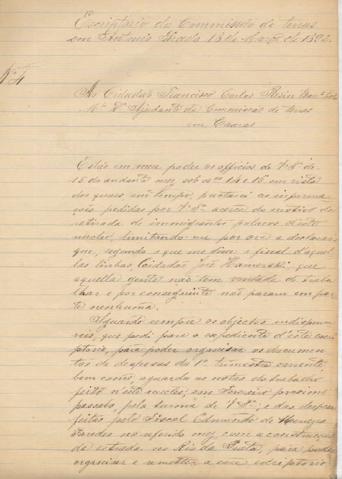 Escriptorio da Commissão de terras
em Antonio Prado 18 de Março de 1892.
Nº 4
Ao Cidadão Francisco Carlos
M. D. Ajudante da Commissão de terras
em Caxias
Estão em meu poder os officios de Vª Sª de
15 do andante mez, sob nos 14 e 15 em vista
dos quaes em tempo, prestarei as informa
ções pedidas por Vª Sª acerca do motivo da
retirada de immigrantes polacos d'este
nucleo, limitando-me por ora a declarar
que, segundo o que me disse o fiscal d'aquel
las linhas Cidadão José que
aquella gente não tem vontade de traba
lhar e por conseguinte não param em par
te nenhuma.
Aguardo sempre os objectos indispensa
veis, que pedi para o expediente d'este escri
ptorio, para poder organisar os documen
tos de despesas do 1º trimestre corrente,
bem como, aguardo as notas do trabalho
feito n'este nucleo, em Fevereiro proximo
passado, pela turma de Vª Sª, e das despesas
feitas pelo Fiscal Edmundo de
no referido mez com a construcção
da estrada no Rio da Prata, para poder
organisar e remetter a esse escriptorio